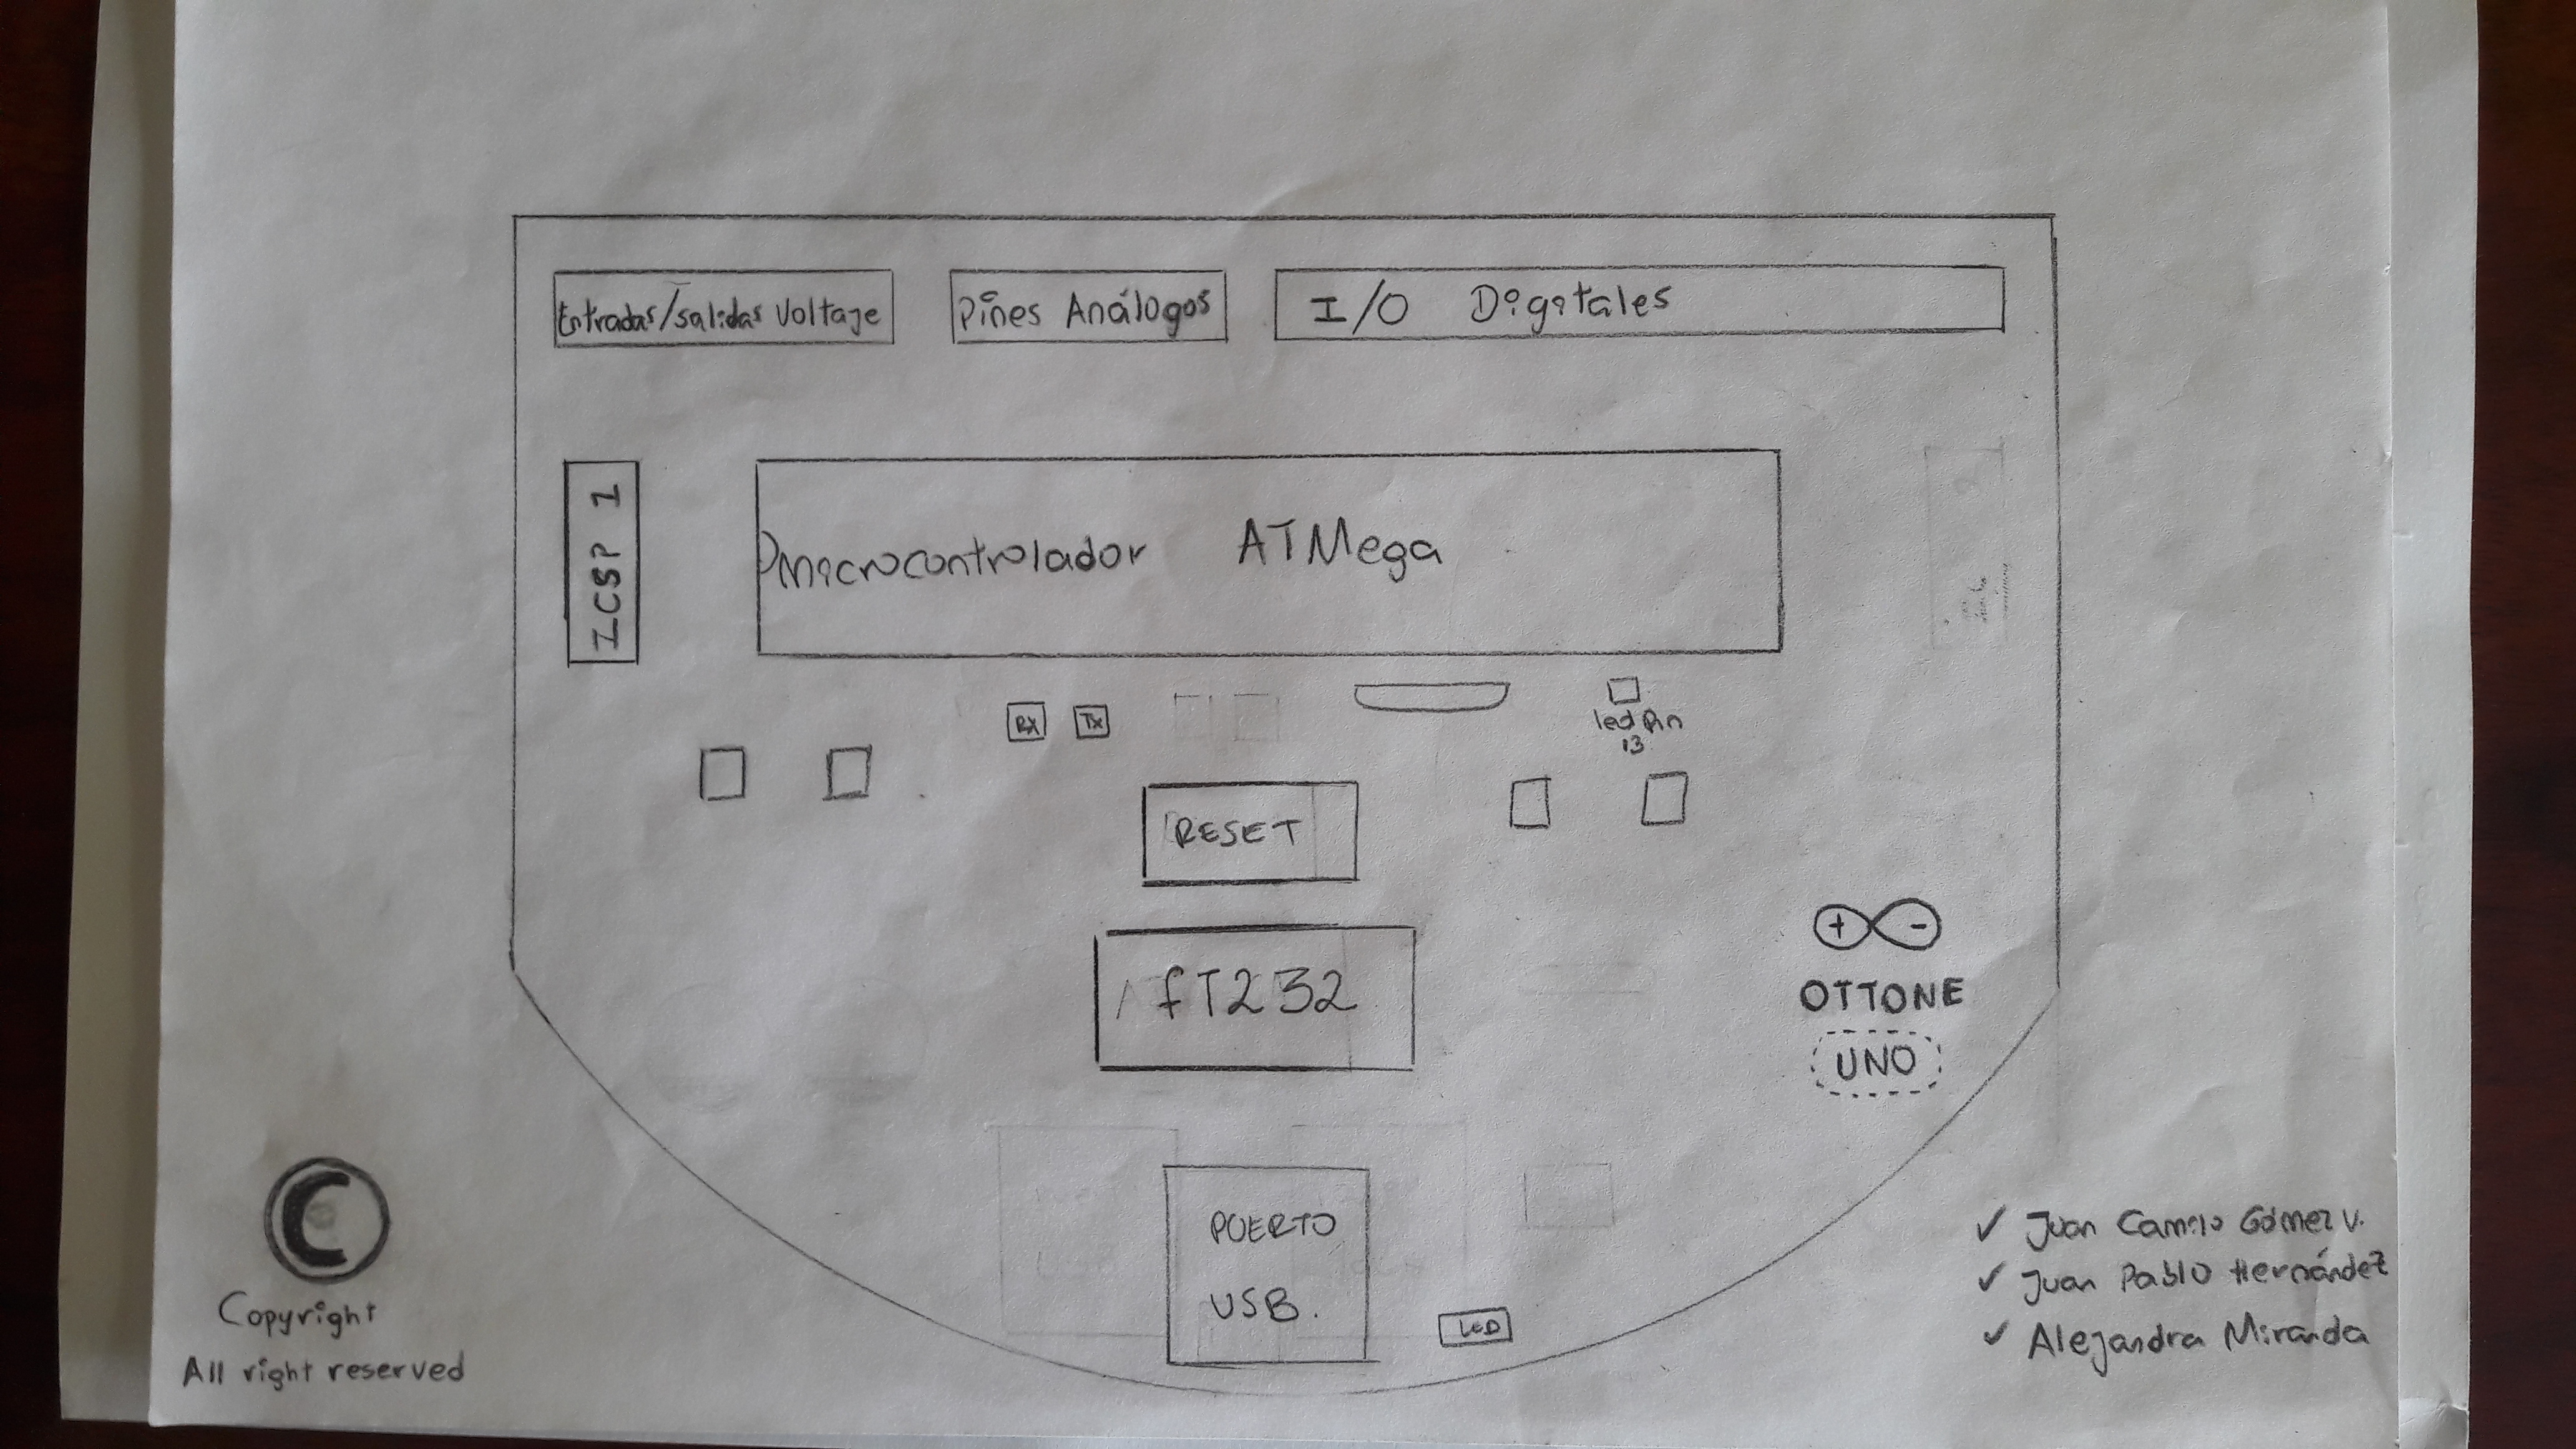 Entradas/salidas Voltaje
Pines Análogos
I/O Digitales
ICSP 1
Microcontrolador ATMega
Rx
Tx
led Pin
13
RESET
fT232
+ -
OTTONE
UNO
PUERTO
USB.
LED
C
Copyright
All right reserved
✓ Juan Camilo Gómez V.
✓ Juan Pablo Hernández
✓ Alejandra Miranda